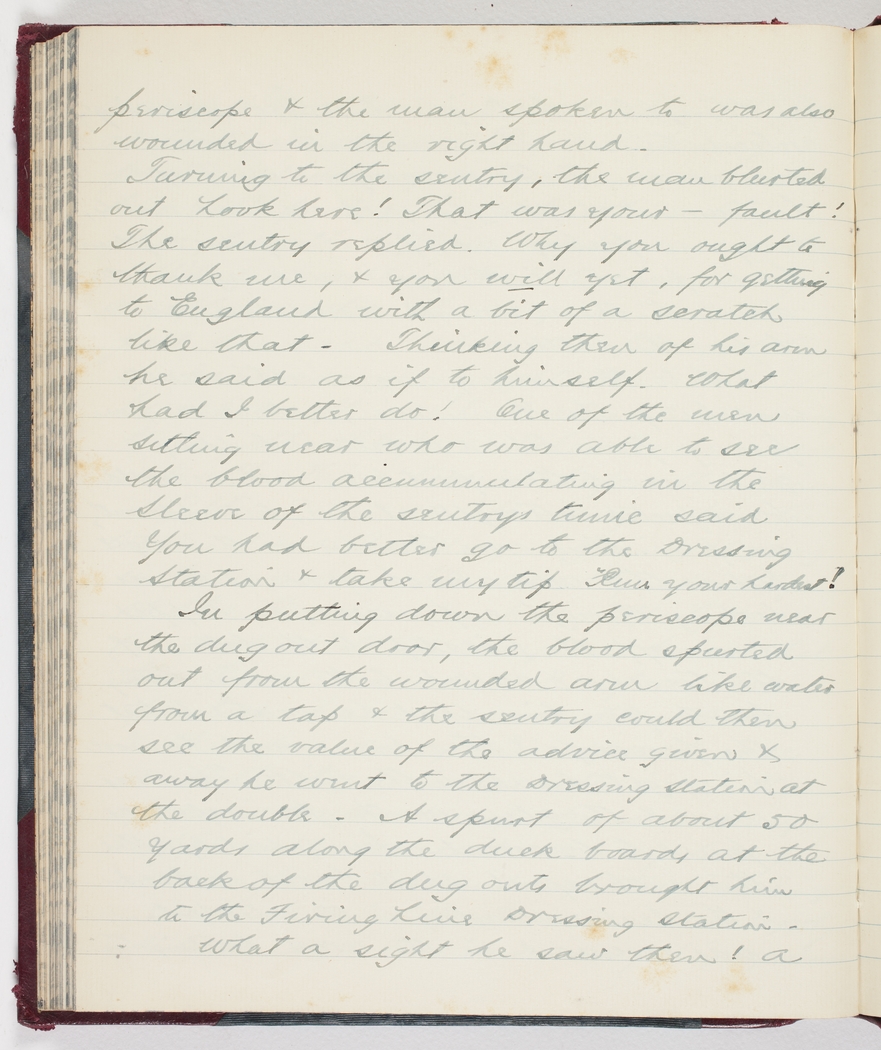 periscope & the man spoken to was also
wounded in the right hand.
Turning to the sentry, the man blurted
out Look here! That was your — fault!
The sentry replied. Why you ought to
thank me, & you will yet, for getting
to England with a bit of a scratch
like that - Thinking then of his arm
he said as if to himself. What
had I better do! One of the men
sitting near who was able to see
the blood accummulating in the
sleeve of the sentrys tunic said
You had better go to the Dressing
Station & take my tip Run your hardest!
In putting down the periscope near
the dug out door, the blood spurted
out from the wounded arm like water
from a tap & the sentry could then
see the value of the advice given &
away he went to the Dressing Station at
the double - A spurt of about 50
yards along the duck boards at the
back of the dug outs brought him
to the Firing Line Dressing Station -
What a sight he saw then! a